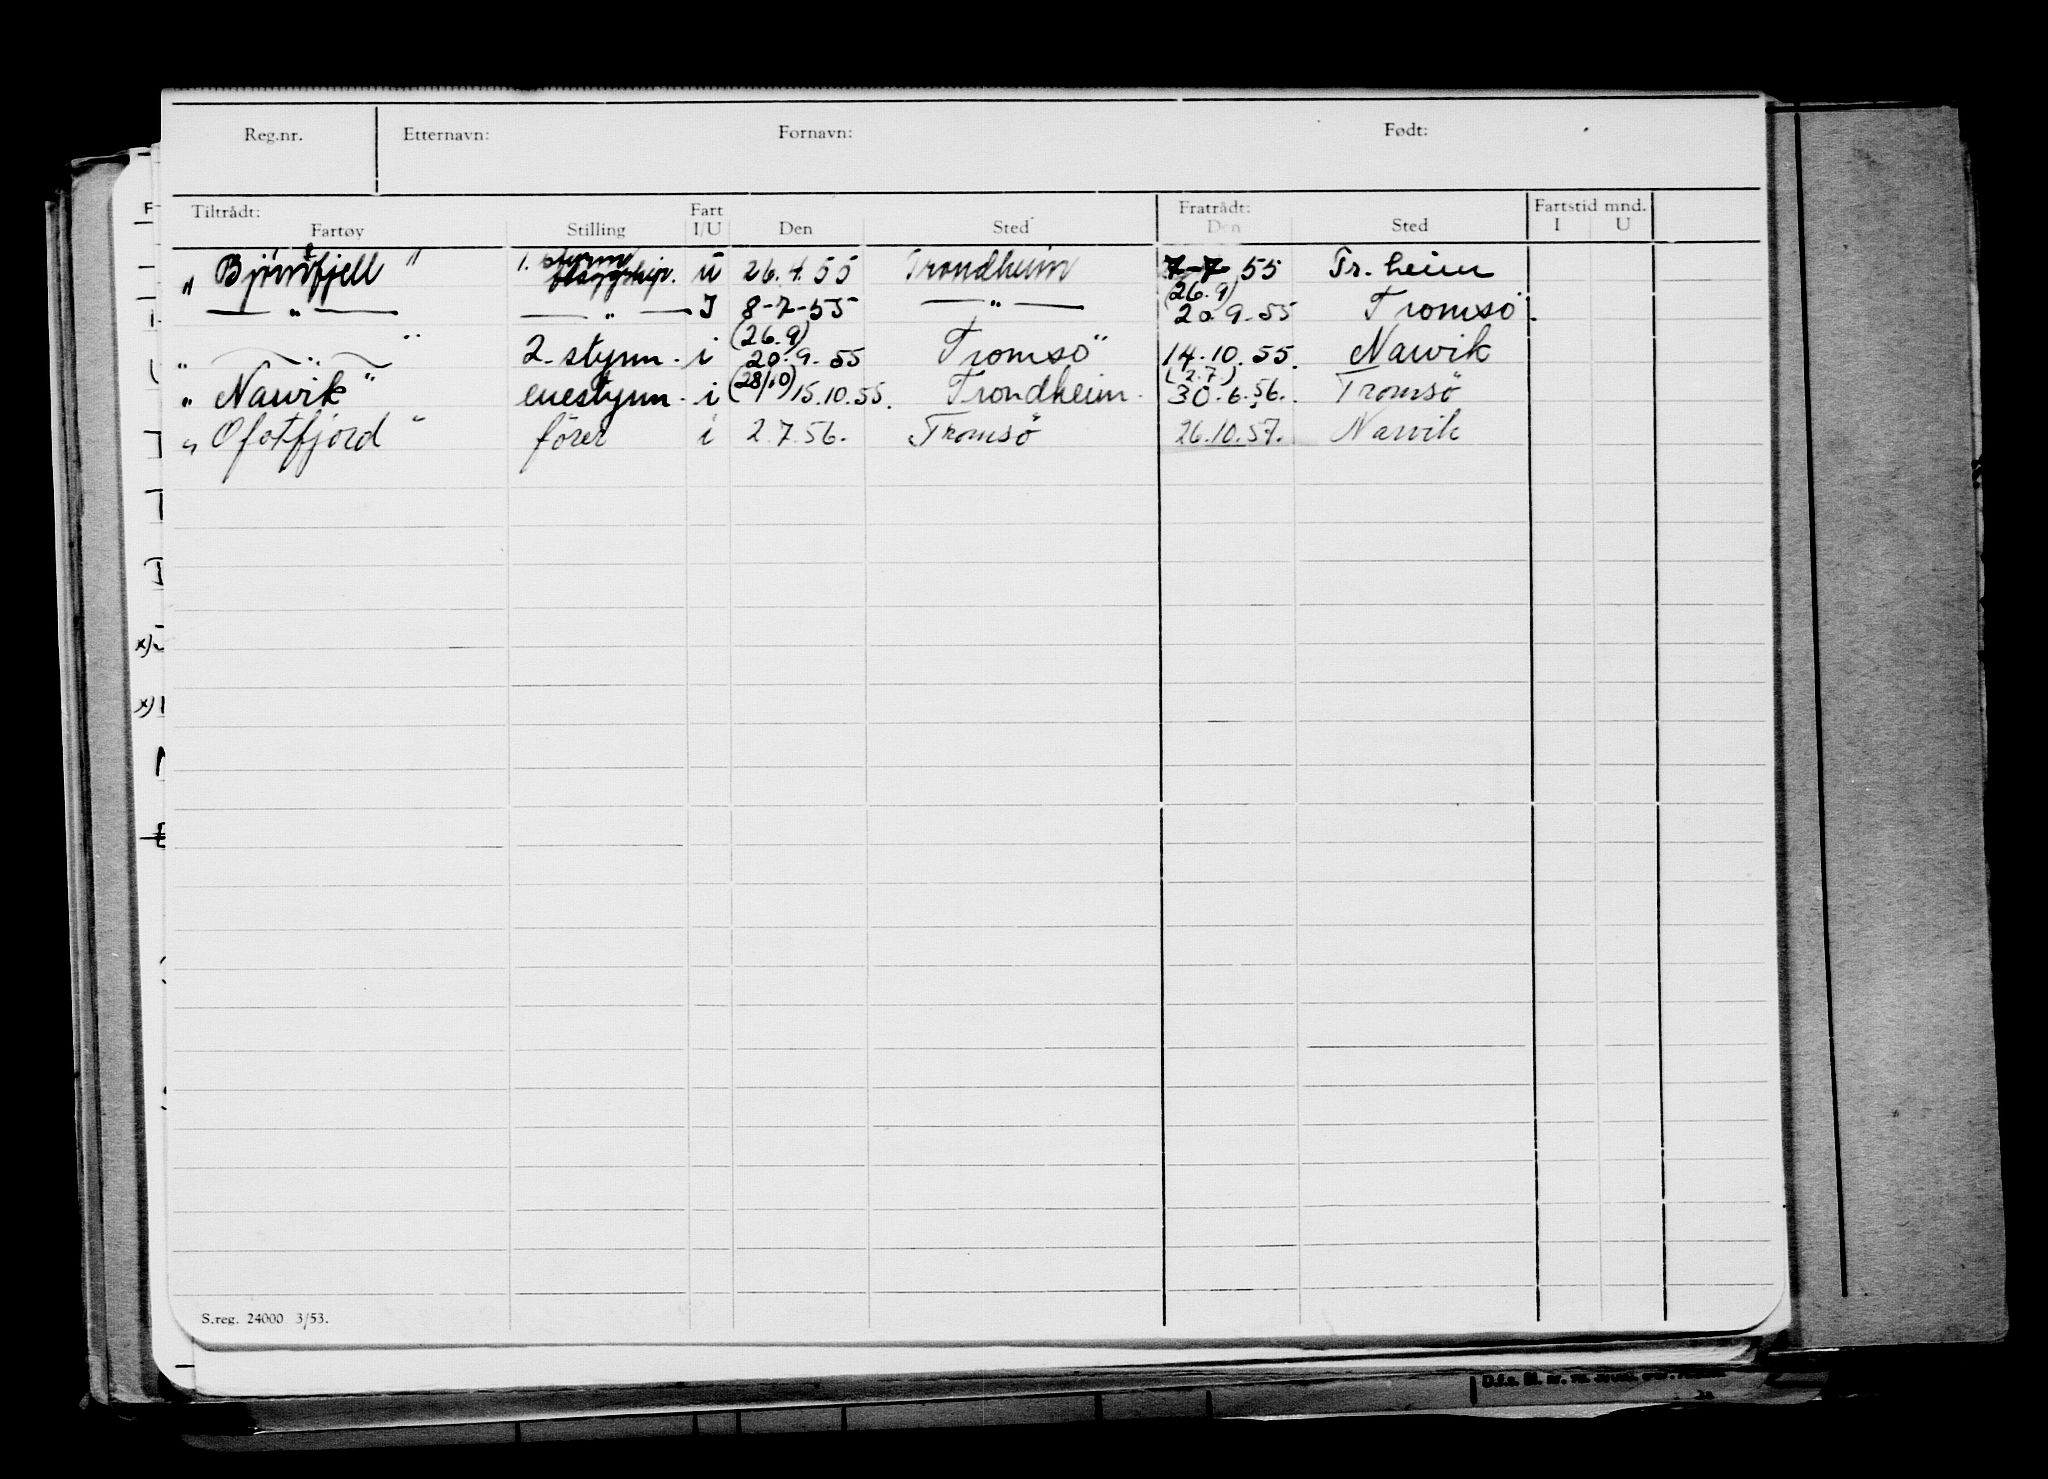 Reg.nr. Etternavn: Fornavn: Født:
Tiltrådt: Fart Fratrådt: Fartstid mnd.
Fartøy Stilling I/U Den Sted Den Sted I U
„ Björnfjell " 1. styrm ü 26.4.55 Trondheim 7-7-55 Tr.heim
— „ — — „ — I 8-7-55 — „ — (26.9) 20.9.55 Tromsö.
„ — „ — " 2. styrm. i (26.9) 20.9.55 Tromsö 14.10.55. Narvik
„ Narvik " enestyrm. i (28/10) 15.10.55. Trondheim. (2.7) 30.6.56. Tromsö
„ Ofotfjord " förer i 2.7.56. Tromsö 26.10.57. Narvik
S.reg. 24000 3/53.